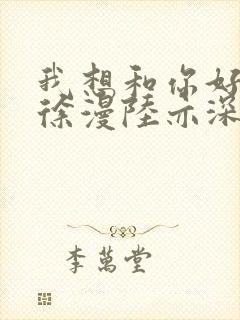 我想和你好
徐漫陸亦深
李萬堂